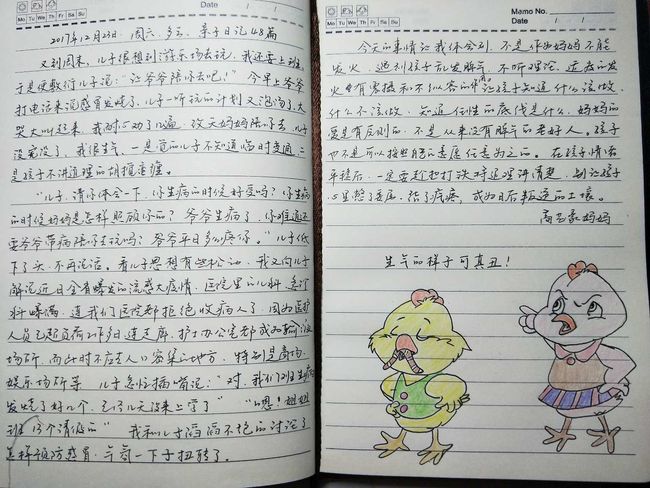 Mo Tu We Th Fr Sa Su
Date
2017年12月23日 周六 多云 亲子日记48篇
又到周末,儿子很想到游乐场去玩,我还要上班,
于是便敷衍儿子说:“让爷爷陪你去吧!”今早上爷爷
打电话来说感冒发烧了,儿子一听玩的计划又泡汤了,大
哭大叫起来,我耐心劝了几遍,改天妈妈陪你去,儿子
没完没了,我很生气,一是觉的儿子不知道啥时变通,二
是孩子不讲道理的胡搅蛮缠。
“儿子,请你体会一下,你生病的时候好受吗?你生病
的时候妈妈是怎样照顾你的?爷爷生病了,你难道还
要爷爷带病陪你去玩吗?爷爷平日多么疼你。”儿子低
下了头,不再说话。看儿子思想有些松动,我又向儿子
解说近日全省爆发的流感大疫情,医院里的儿科、急诊
科曝满,连我们医院都拒绝收病人了,因为医护
人员已超负荷工作多日连轴,护士办公室都成为输液
场所,而此时不应去人口密集的地方,特别是商场、
娱乐场所等。儿子急忙插嘴说:“对,我们班生病
发烧了好几个,已好几天没来上学了”“嗯!姐姐
班13个请假的”我和儿子滔滔不绝的讨论了
怎样预防感冒,气氛一下子扭转了。
Memo No.
Mo Tu We Th Fr Sa Su
Date
今天的事情让我体会到,不是作为妈妈不能
发火,遇到孩子乱发脾气,不听理论,适度的发
火也有震慑而不纵容的作用。让孩子知道什么该做,
什么不该做,知道任性的底线是什么,妈妈的
爱是有原则的,不是从来没有脾气的老好人。孩子
也不是可以按照自己的意愿任意为之的。在孩子情绪
平稳后,一定要趁热打铁对道理讲清楚,别让孩子
心里憋了委屈,结了疙瘩,成为日后叛逆的土壤。
妈妈
生气的样子可真丑!